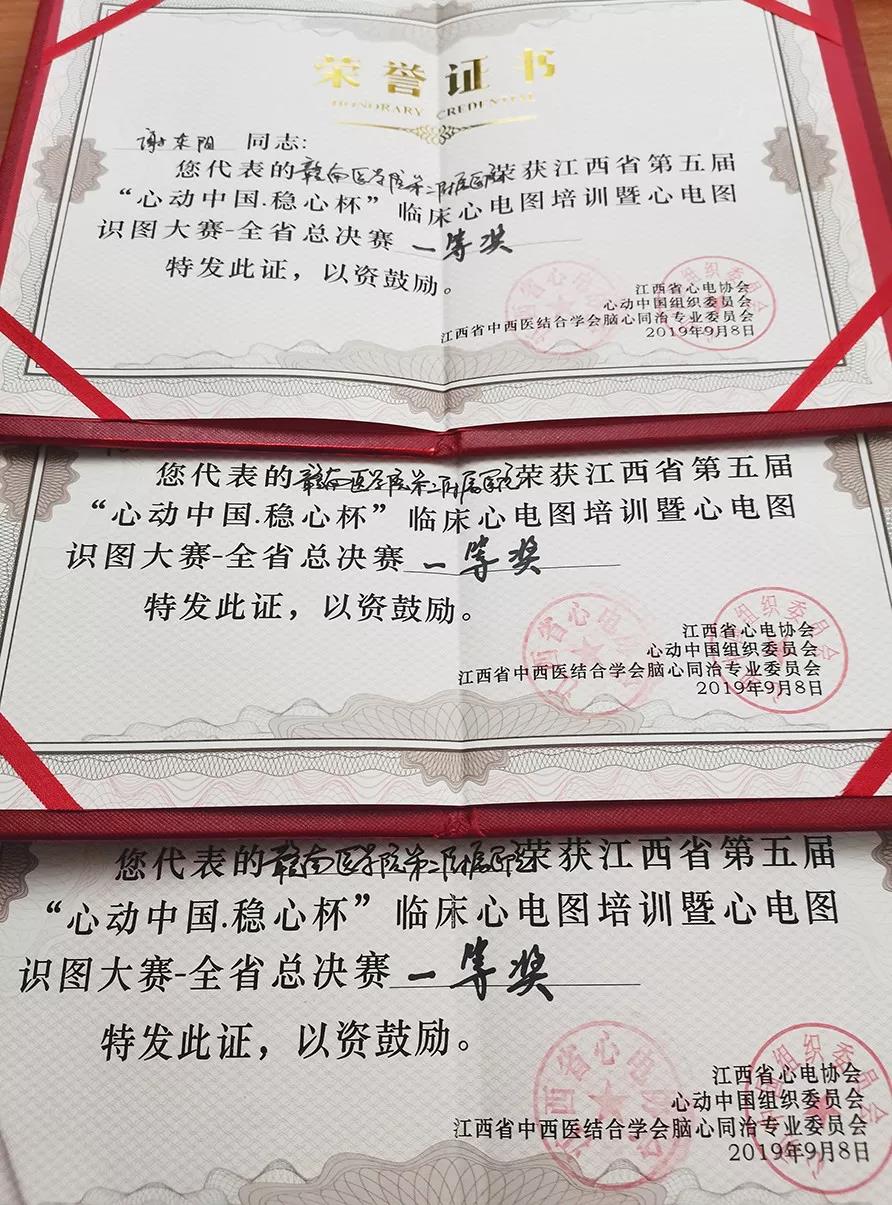 荣誉证书
HONORARY CREDENTIAL
谢东阳 同志:
您代表的赣南医学院第二附属医院荣获江西省第五届
“心动中国.稳心杯”临床心电图培训暨心电图
识图大赛-全省总决赛 一等奖
特发此证，以资鼓励。
江西省心电协会
心动中国组织委员会
江西省中西医结合学会脑心同治专业委员会
2019年9月8日
您代表的赣南医学院第二附属医院荣获江西省第五届
“心动中国.稳心杯”临床心电图培训暨心电图
识图大赛-全省总决赛 一等奖
特发此证，以资鼓励。
江西省心电协会
心动中国组织委员会
江西省中西医结合学会脑心同治专业委员会
2019年9月8日
您代表的赣南医学院第二附属医院荣获江西省第五届
“心动中国.稳心杯”临床心电图培训暨心电图
识图大赛-全省总决赛 一等奖
特发此证，以资鼓励。
江西省心电协会
心动中国组织委员会
江西省中西医结合学会脑心同治专业委员会
2019年9月8日